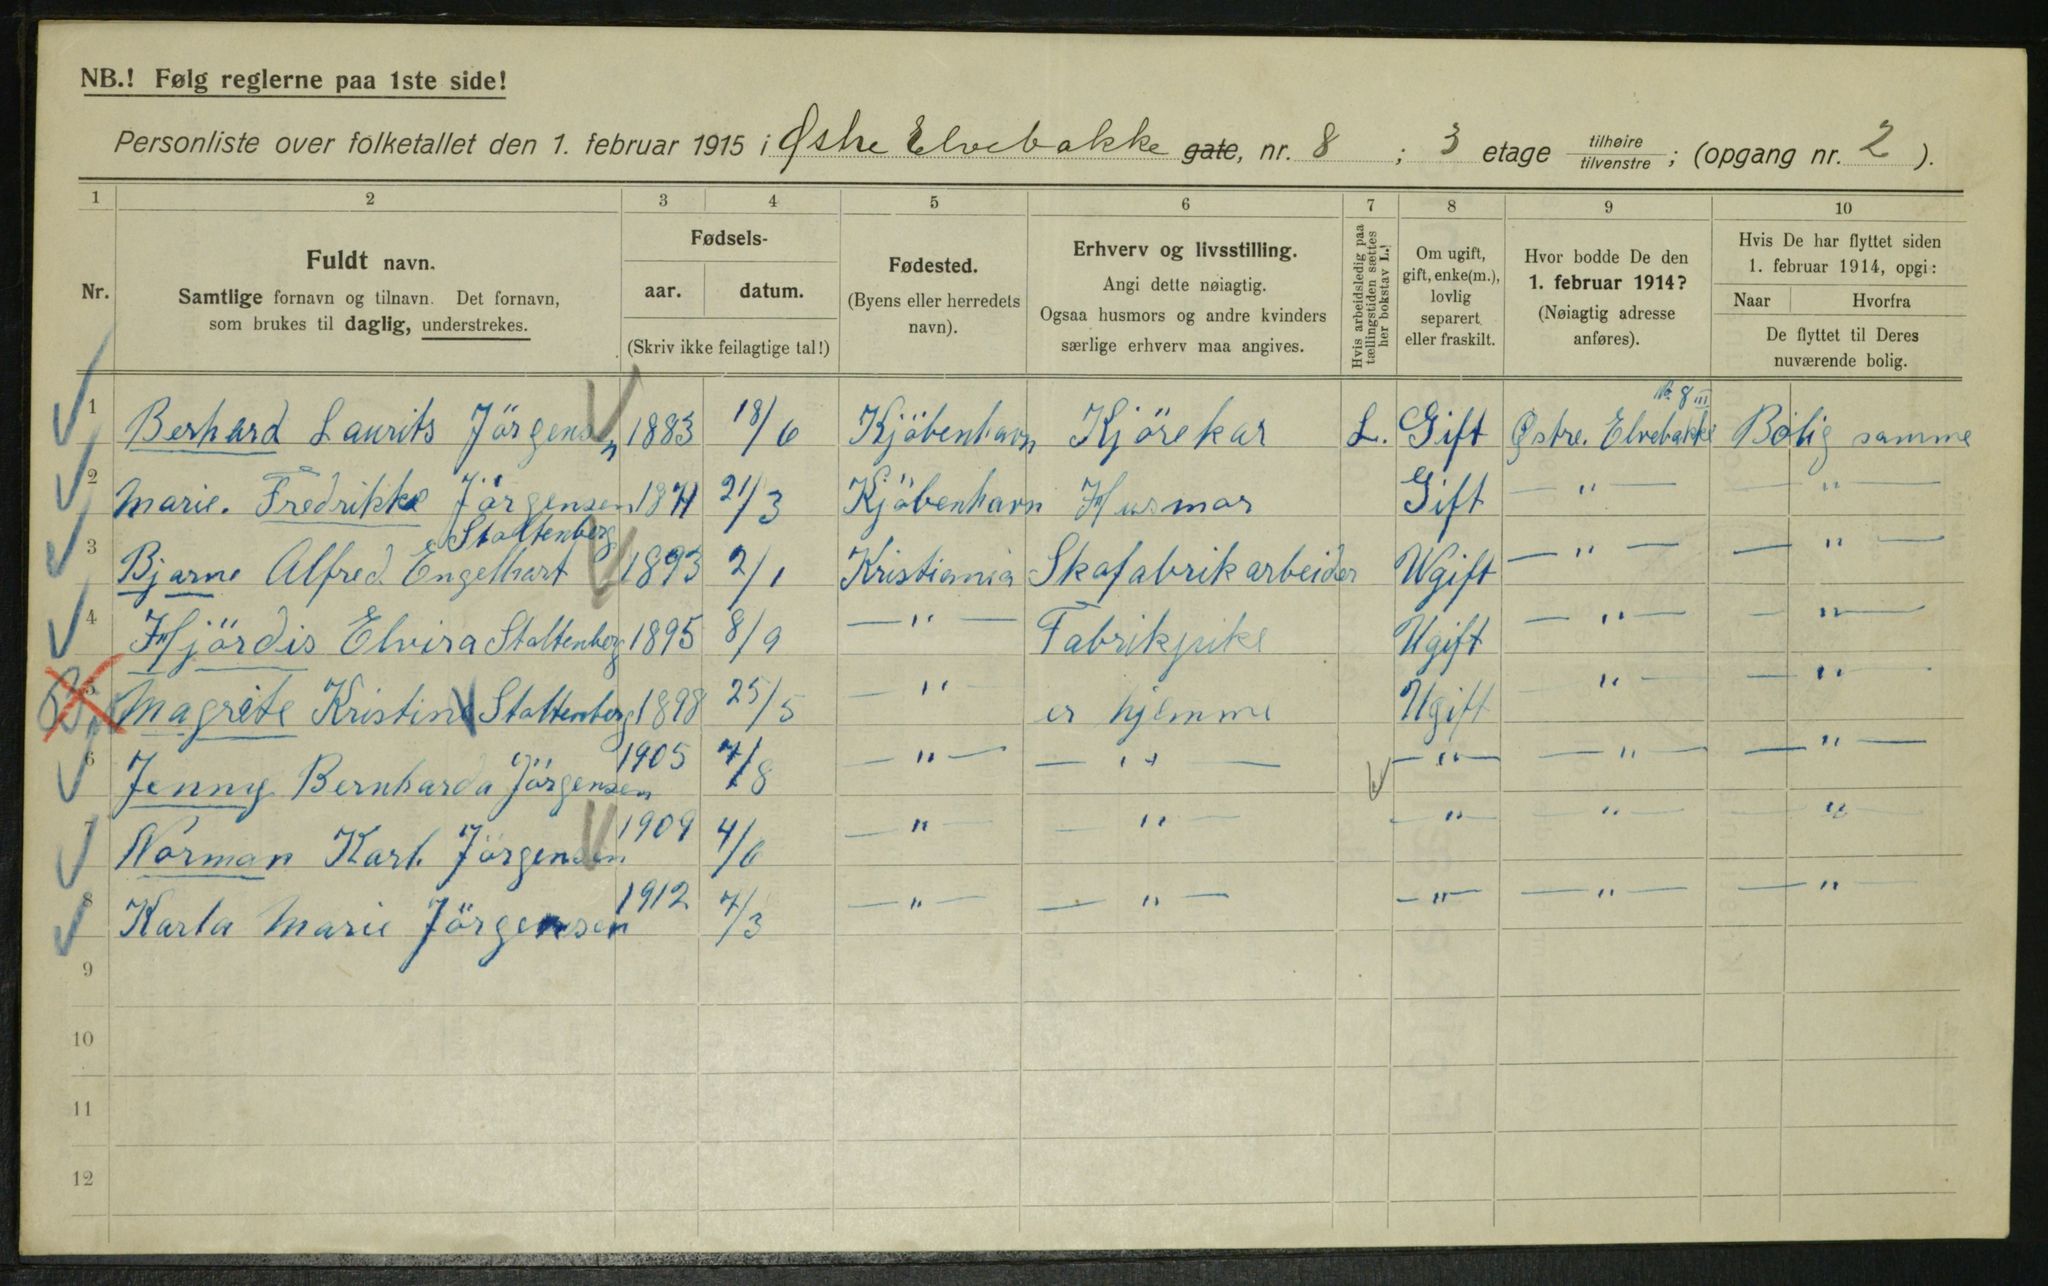 NB.! Følg reglerne paa 1ste side!
Personliste over folketallet den 1. februar 1915 i Østre Elvebakke gate, nr. 8 ; 3 etage tilhøire tilvenstre ; (opgang nr. 2 ).
1 2 3 4 5 6 7 8 9 10
Nr.
Fuldt navn.
Samtlige fornavn og tilnavn. Det fornavn,
som brukes til daglig, understrekes.
Fødsels-
aar. datum.
(Skriv ikke feilagtige tal!)
Fødested.
(Byens eller herredets
navn).
Erhverv og livsstilling.
Angi dette nøiagtig.
Ogsaa husmors og andre kvinders
særlige erhverv maa angives.
Hvis arbeidsledig paa
tællingstiden sættes
her bokstav L.!
Om ugift,
gift, enke(m.),
lovlig
separert
eller fraskilt.
Hvor bodde De den
1. februar 1914?
(Nøiagtig adresse
anføres).
Hvis De har flyttet siden
1. februar 1914, opgi:
Naar Hvorfra
De flyttet til Deres
nuværende bolig.
No. 8 III
1 Berhard Laurits Jörgensen 1883 18/6 Kjöbenhavn Kjörekar L. Gift Østre. Elvebakke Bolig samme
2 Marie. Fredrikke Jörgensen 21/3 Kjöbenhavn Husmor Gift — " — — " —
Stoltenberg
3 Bjarne Alfred Engelhart 1893 2/1 Kristiania Skofabrikarbeider Ugift — " — — " —
4 Hjördis Elvira Stoltenberg 1895 8/9 — " — Fabrikpike Ugift — " — — " —
5 Magrete Kristine Stoltenberg 1898 25/5 — " — er hjemme Ugift — " — — " —
6 Jenny Bernharda Jörgensen 1905 7/8 — " — — " — — " — — " — — " —
7 Norman Karl. Jörgensen 1909 4/6 — " — — " — — " — — " — — " —
8 Karla Marie Jörgensen 1912 7/3 — " — — " — — " — — " — — " —
9
10
11
12